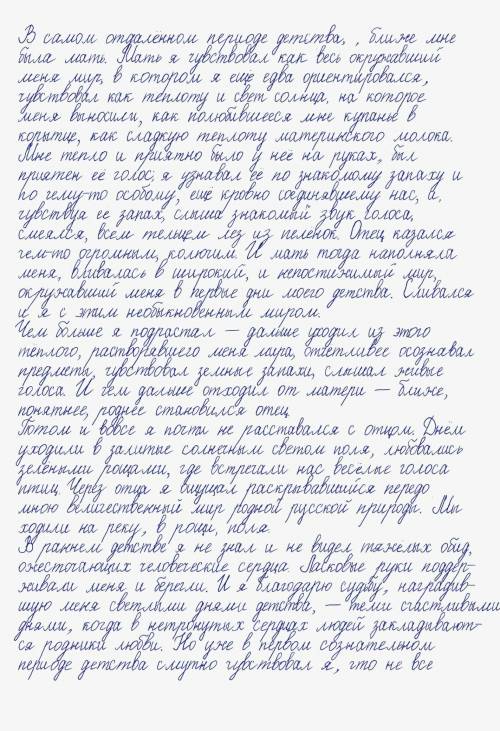 В самом отдалённом периоде детства, , ближе мне
была мать. Мать я чувствовал как весь окружавший
меня мир, в котором я ещё едва ориентировался,
чувствовал как теплоту и свет солнца, на которое
меня выносили, как полюбившееся мне купанье в
корытце, как сладкую теплоту материнского молока.
Мне тепло и приятно было у неё на руках, был
приятен её голос; я узнавал ее по знакомому запаху и
по чему-то особому, ещё кровно соединявшему нас, а,
чувствуя ее запах, слыша знакомый звук голоса,
смеялся, всем тельцем лез из пеленок. Отец казался
чем-то огромным, колючим. И мать тогда наполняла
меня, вливалась в широкий, и непостижимый мир,
окружавший меня в первые дни моего детства. Сливался
и я с этим необыкновенным миром.
Чем больше я подрастал — дальше уходил из этого
теплого, растворявшего меня мира, отчетливее осознавал
предметы, чувствовал земные запахи, слышал живые
голоса. И чем дальше отходил от матери — ближе,
понятнее, роднее становился отец.
Потом и вовсе я почти не расставался с отцом. Днём
уходили в залитые солнечным светом поля, любовались
зелеными рощами, где встречали нас весёлые голоса
птиц. Через отца я ощущал раскрывавшийся передо
мною величественный мир родной русской природы. Мы
ходили на реку, в рощи, поля.
В раннем детстве я не знал и не видел тяжелых обид,
ожесточающих человеческие сердца. Ласковые руки поддер-
живали меня и берегли. И я благодарю судьбу, наградив-
шую меня светлыми днями детства, — теми счастливыми
днями, когда в нетронутых сердцах людей закладывают-
ся родники любви. Но уже в первом сознательном
периоде детства смутно чувствовал я, что не все